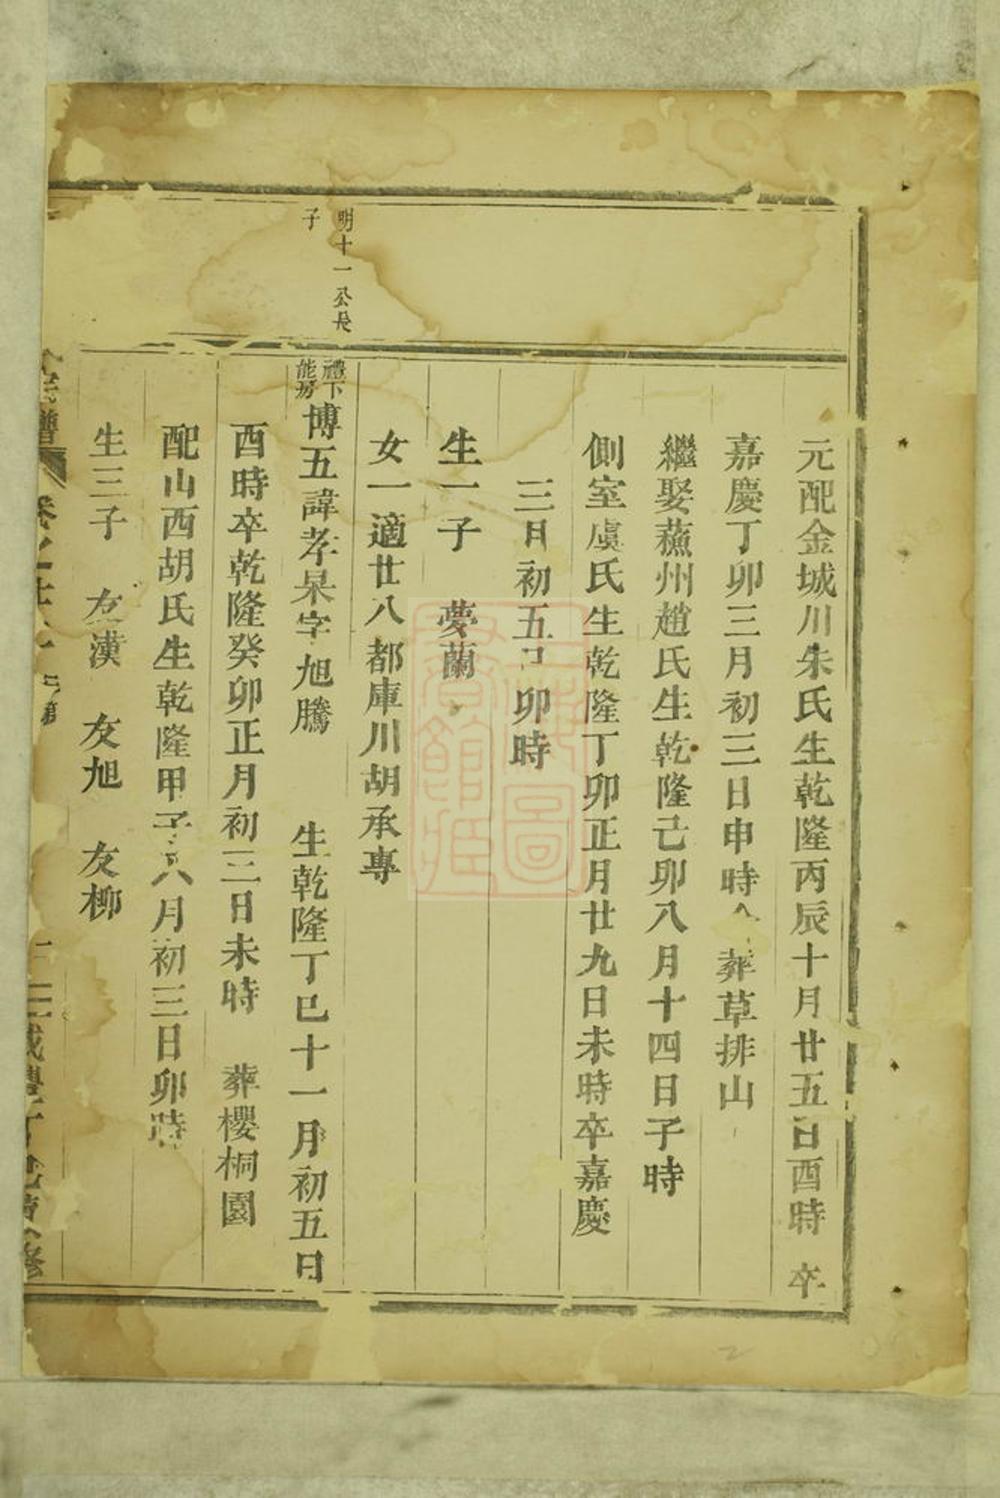 元配金城川朱氏生乾隆丙辰十月廿五日酉時 卒
嘉慶丁卯三月初三日申時 葬草排山
繼娶蘓州趙氏生乾隆己卯八月十四日子時
側室虞氏生乾隆丁卯正月廿九日未時卒嘉慶
三日初五 卯時
生一子 夢蘭
女一適廿八都庫川胡承專
明十一公長
子
禮下
能房
博五諱孝杲字旭騰 生乾隆丁巳十一月初五日
酉時卒乾隆癸卯正月初三日未時 葬櫻桐園
配山西胡氏生乾隆甲子八月初三日卯時
生三子 友漢 友旭 友柳
氏譜 卷之